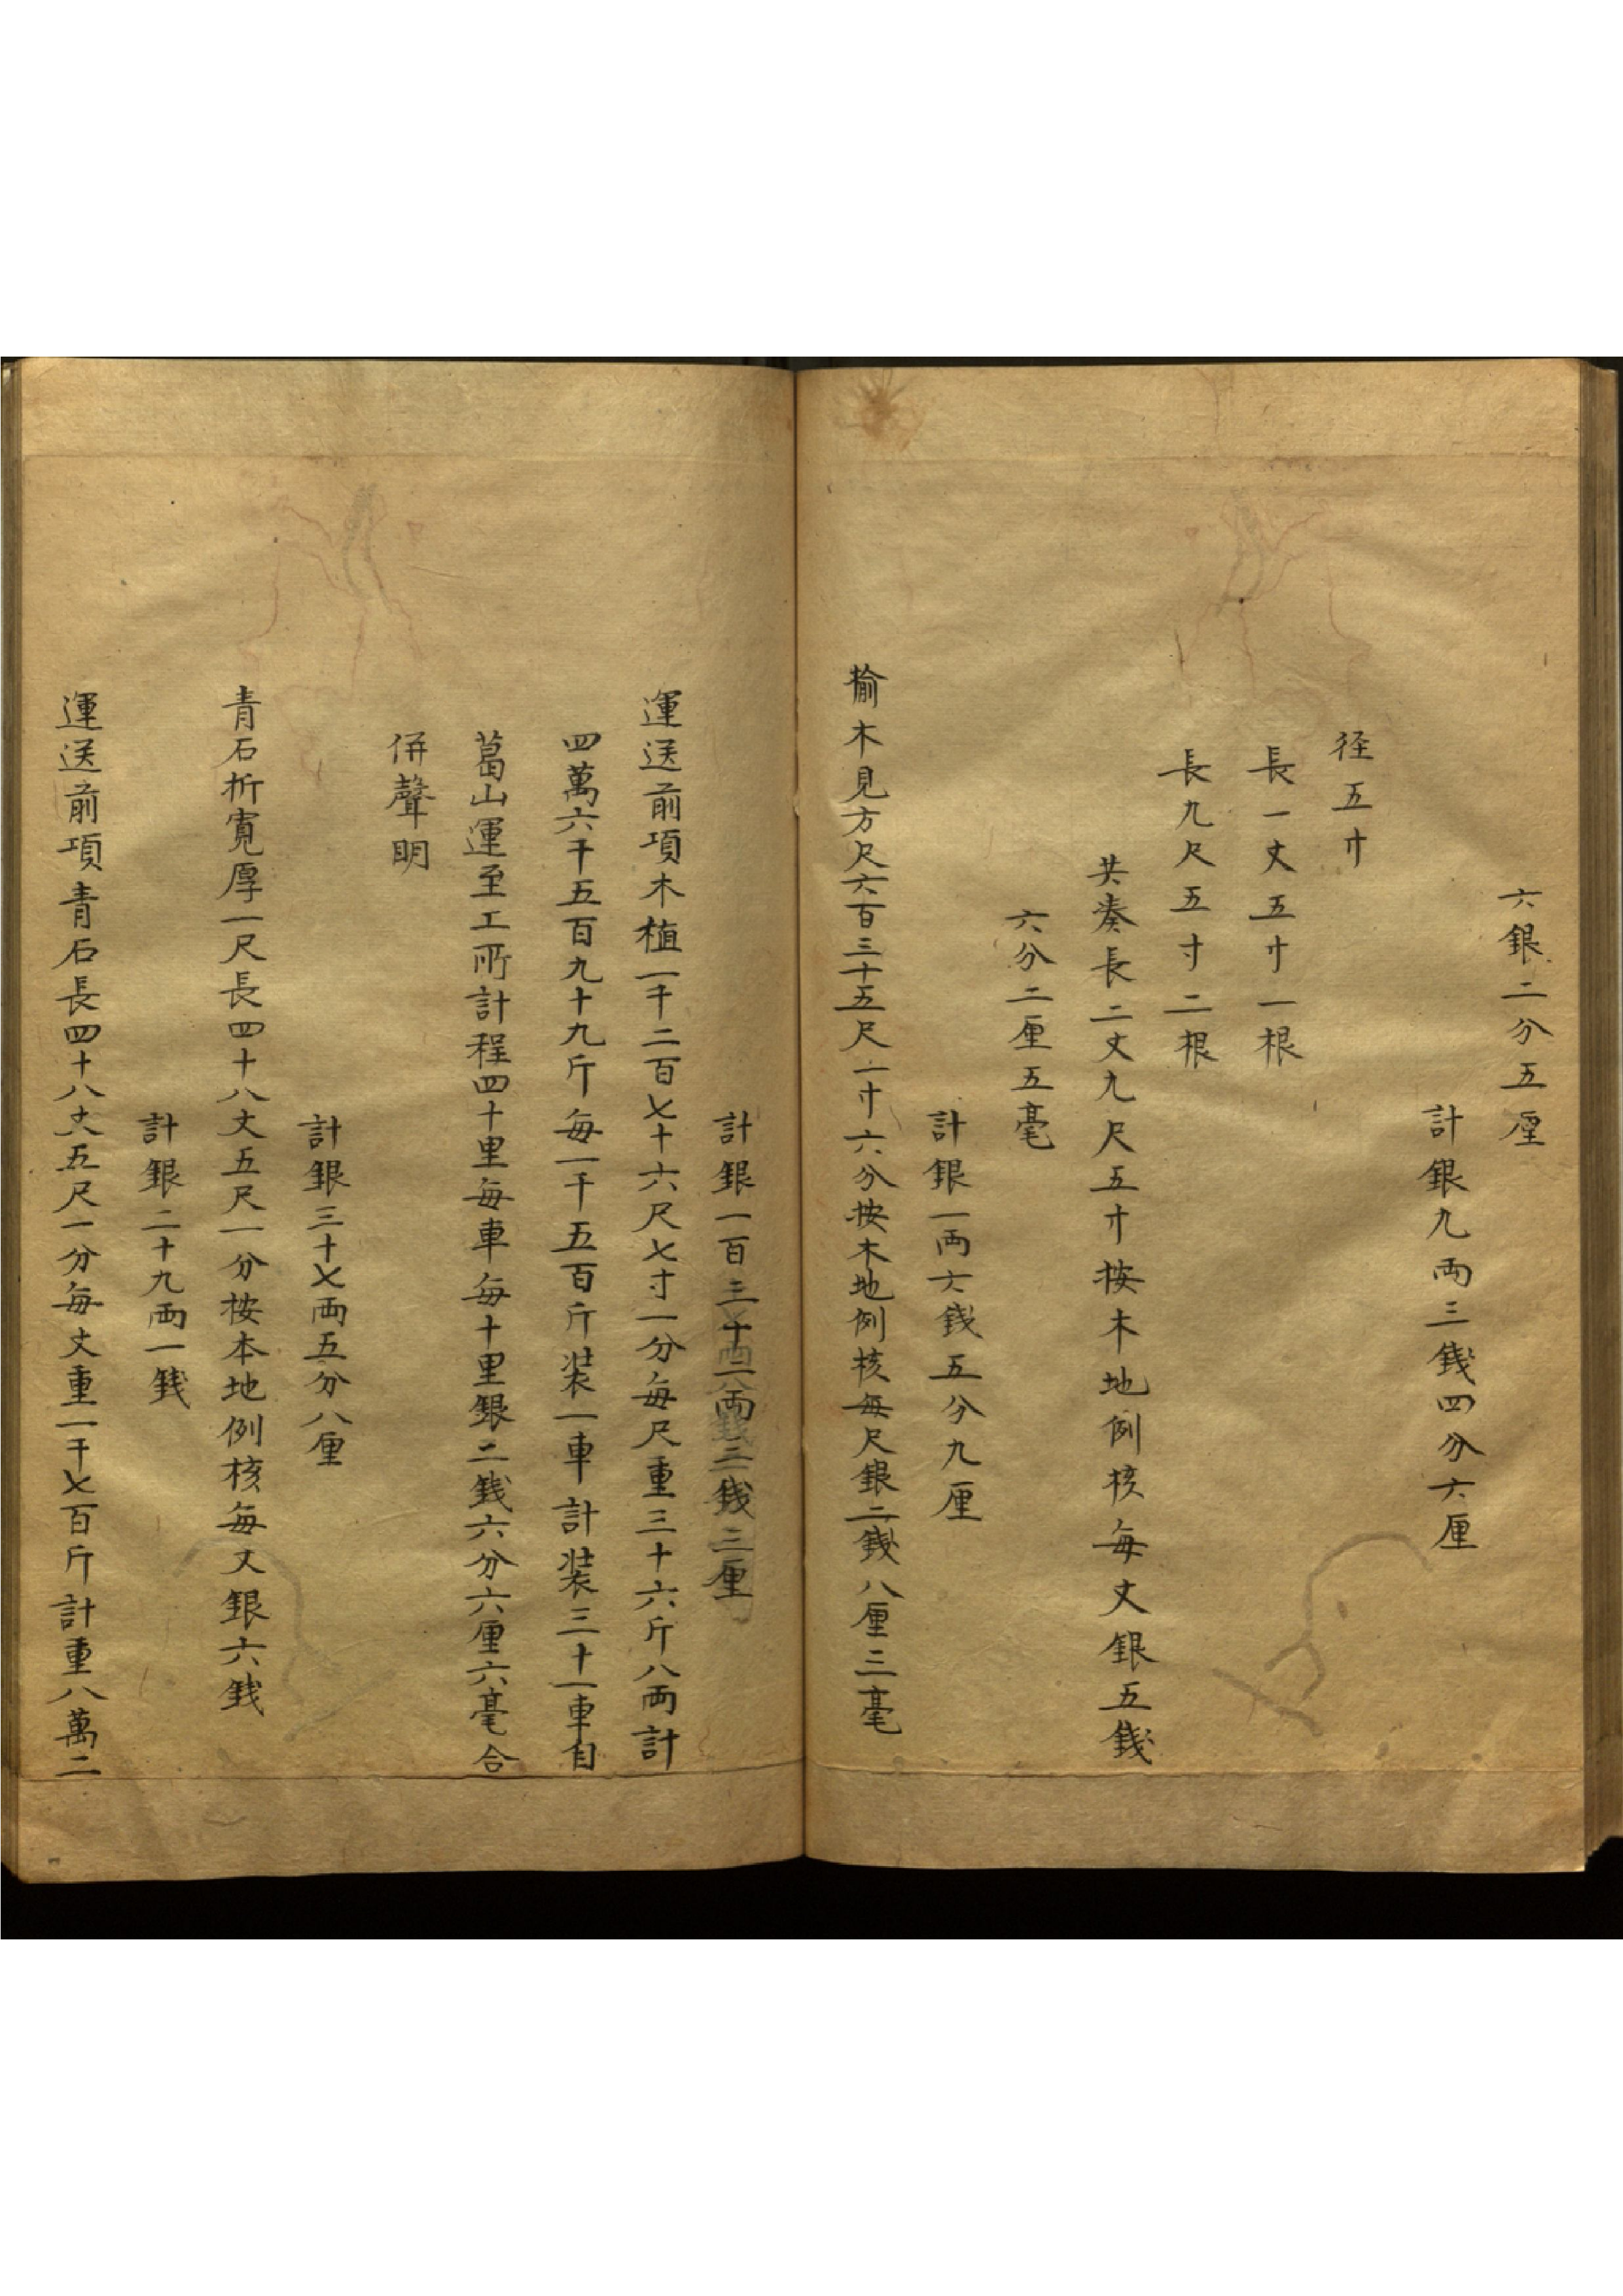 六銀二分五厘
計銀九両三錢四分六厘
径五寸
長一丈五寸一根
長九尺五寸二根
共奏長二丈九尺五寸按木地例核每丈銀五錢
六分二厘五毫
計銀一両六錢五分九厘
榆木見方尺六百三十五尺一寸六分按木地例核每尺銀二錢八厘三毫
計銀一百三十二両三錢三厘
運送前項木植一千二百七十六尺七寸一分每尺重三十六斤八両計
四萬六千五百九十九斤每一千五百斤装一車計装三十一車自
葛山運至工所計程四十里每車每十里銀二錢六分六厘六毫合
併聲明
計銀三十七両五分八厘
青石折寬厚一尺長四十八丈五尺一分按本地例核每丈銀六錢
計銀二十九両一錢
運送前項青石長四十八丈五尺一分每丈重一千七百斤計重八萬二